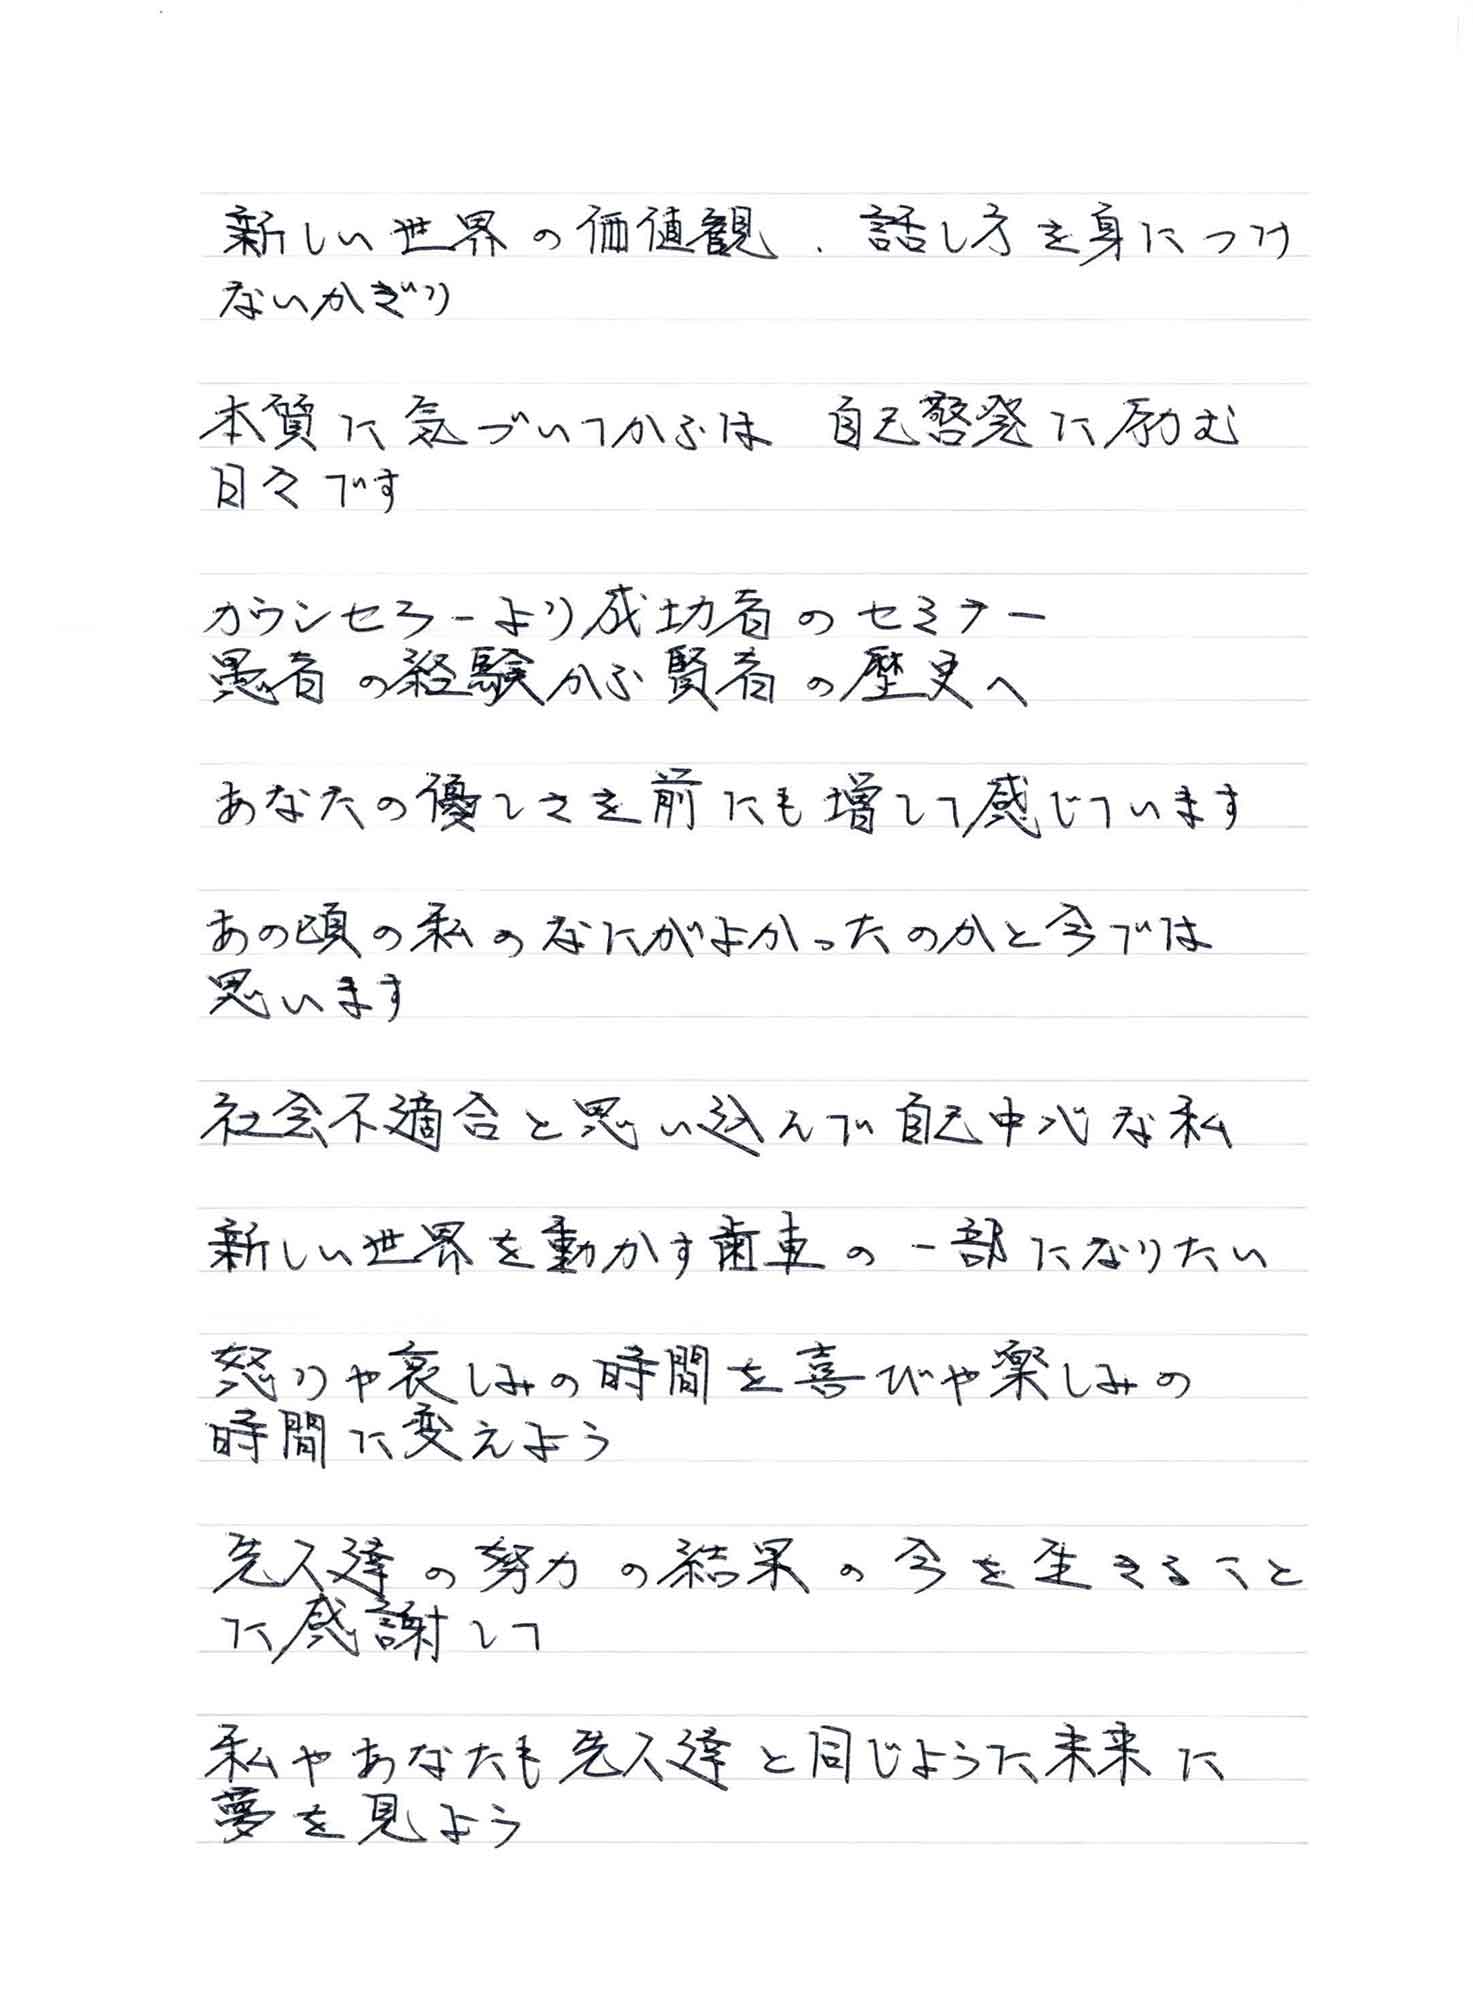 新しい世界の価値観、話し方を身につけ
ないかぎり
本質に気づいてからは 自己啓発に励む
日々です
カウンセラーより成功者のセミナー
愚者の経験から賢者の歴史へ
あなたの優しさを前にも増して感じています
あの頃の私のなにがよかったのかと今では
思います
社会不適合と思い込んで自己中心な私
新しい世界を動かす歯車の一部になりたい
怒りや哀しみの時間を喜びや楽しみの
時間に変えよう
先人達の努力の結果の今を生きること
に感謝して
私やあなたも先人達と同じように未来に
夢を見よう